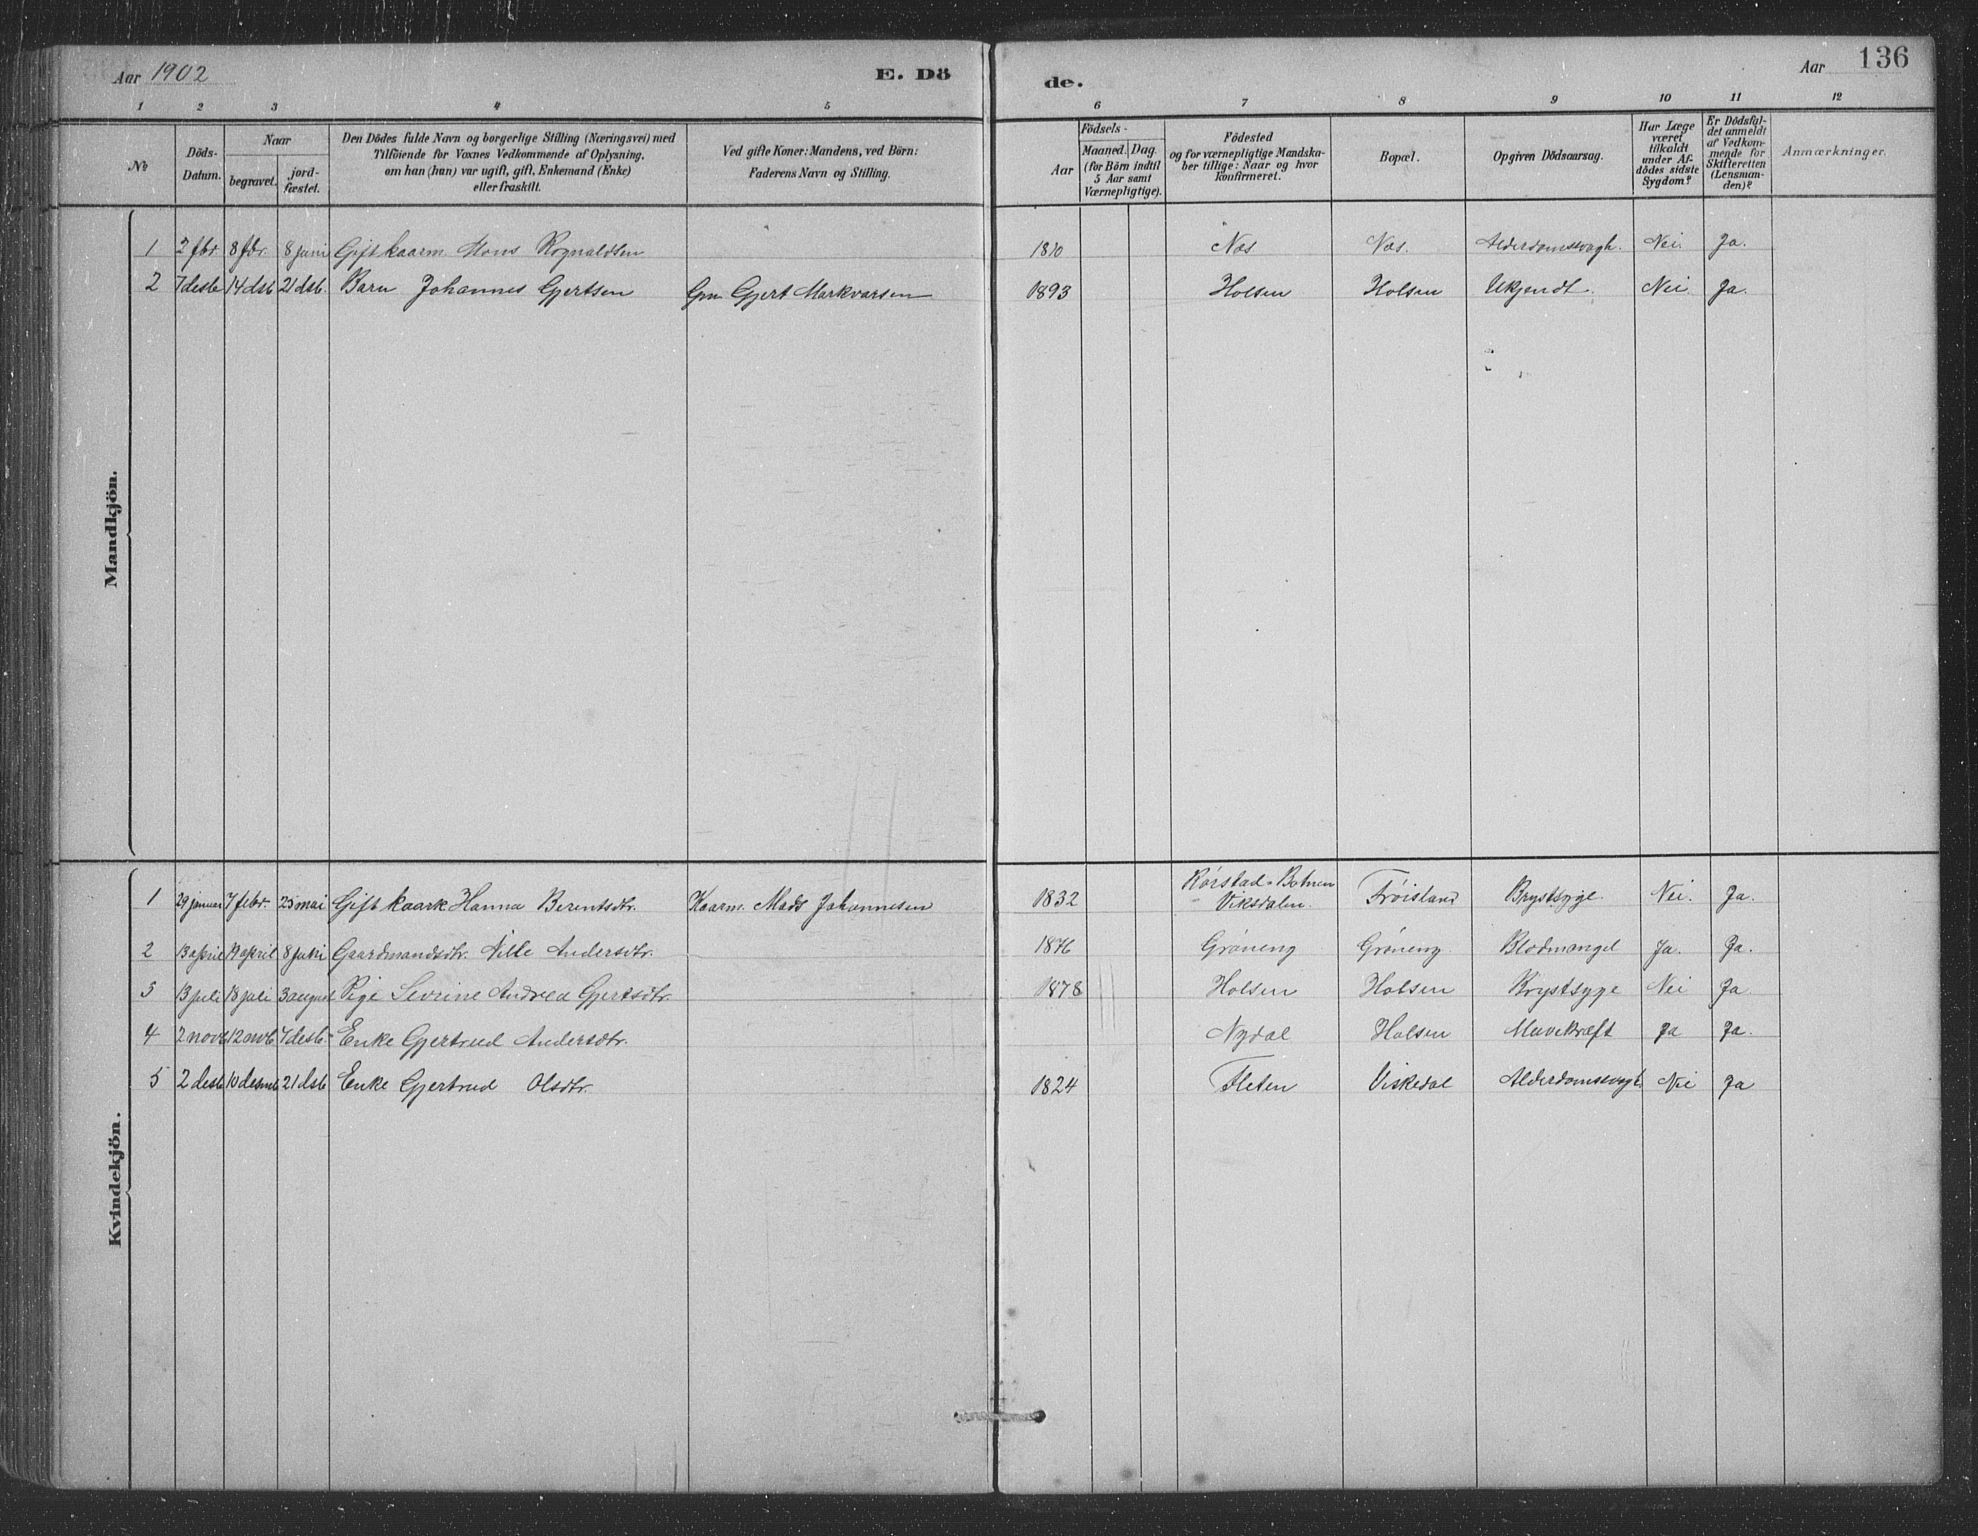 Aar 1902
E. Dö
de.
Aar
136
1 2 3 4 5 6 7 8 9 10 11 12
№
Döds-
Datum.
Naar
begravet.
jord-
fæstet.
Den Dödes fulde Navn og borgerlige Stilling (Næringsvei) med
Tilföiende for Voxnes Vedkommende af Oplysning,
om han (hun) var ugift, gift, Enkemand (Enke)
eller fraskilt.
Ved gifte Koner: Mandens, ved Börn:
Faderens Navn og Stilling.
Födsels-
Aar
Maaned. Dag.
(for Börn indtil
5 Aar samt
Værnepligtige).
Födested
og for værnepligtige Mandska-
ber tillige: Naar og hvor
konfirmeret.
Bopæl.
Opgiven Dödsaarsag.
Har Læge
været
tilkaldt
under Af-
dödes sidste
Sygdom?
Er Dödsfal-
det anmeldt
af Vedkom-
mende for
Skifteretten
(Lensman-
den)?
Anmærkninger.
Mandkjön.
1 2 fbr. 8 fbr. 8 juni Gift kaarm. Mons Rognaldsen 1810 Nes Nes. Alderdomssvagh. Nei Ja.
2 7 desb 14 dsb 21 dsb. Barn Johannes Gjertsen Gm. Gjert Markvarsen 1893 Holsen Holsen Ukjendt. Nei. Ja.
Kvindekjön.
1 29 januar 7 febr. 25 mai Gift kaark Hanna Berentsdtr. Kaarm. Mads Johannesen 1832 Rörstad - Botnen
Viksdalen. Tröisland Brystsyge. Nei. Ja.
2 13 april 19 april 8 juni Gaardmandsdtr. Nille Andersdtr. 1876 Gröneng Gröneng Blodmangel Ja. Ja.
3 13 juli 18 juli 3 august Pige Sevrine Andrea Gjertsdtr. 1878 Holsen Holsen Brystsyge Nei Ja.
4 2 novb 12 novb 7 desb. Enke Gjertrud Andersdtr. Nydal Holsen Mavekræft Ja Ja.
5 2 desb 10 desmb 21 dsb Enke Gjertrud Olsdtr. 1824 Fleten Viskedal Alderdomssvagh. Nei Ja